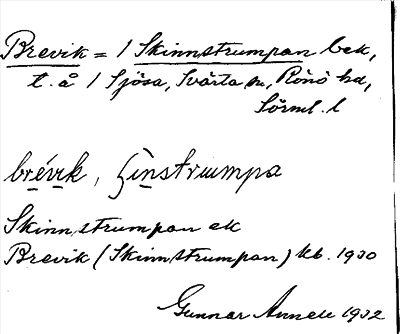 Brevik = 1 Skinnstrumpan bek,
t. å 1 Sjösa, Svärta sn, Rönö hd,
Sörml. l
brévik, ʃinstrumpa
Skinnstrumpan ek
Brevik (Skinnstrumpan) kb. 1930
Gunnar Annell 1932